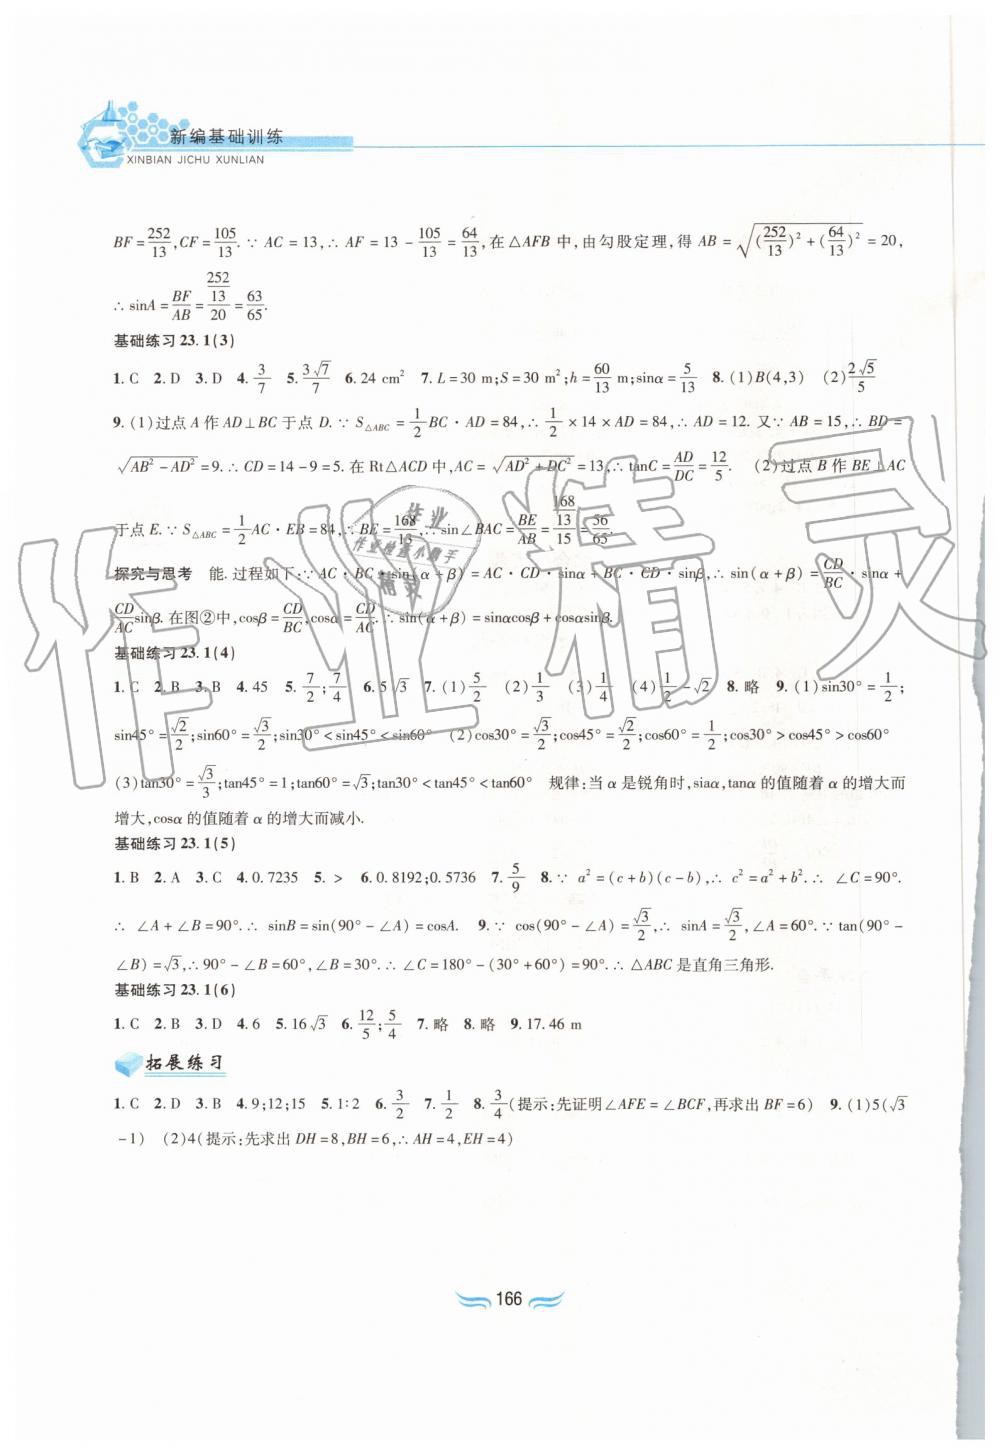 新编基础训练
XINBIAN JICHU XUNLIAN
BF=252/13,CF=105/13.∵ AC=13,∴ AF=13-105/13=64/13,在△AFB中,由勾股定理,得 AB=√((252/13)²+(64/13)²)=20,
∴ sinA=BF/AB=(252/13)/20=63/65.
基础练习23.1(3)
1.C 2.D 3.D 4.3/7 5.3√7/7 6.24 cm² 7.L=30 m;S=30 m²;h=60/13 m;sinα=5/13 8.(1)B(4,3) (2)2√5/5
9.(1)过点A作AD⊥BC于点D.∵ S△ABC=1/2BC·AD=84,∴1/2×14×AD=84,∴AD=12.又∵AB=15,∴BD=
√(AB²-AD²)=9.∴CD=14-9=5.在Rt△ACD中,AC=√(AD²+DC²)=13,∴tanC=AD/DC=12/5. (2)过点B作BE⊥AC
于点E.∵S△ABC=1/2AC·EB=84,∴BE=168/13,∴sin∠BAC=BE/AB=(168/13)/15=56/65.
探究与思考 能.过程如下:∵AC·BC·sin(α+β)=AC·CD·sinα+BC·CD·sinβ,∴sin(α+β)=CD/BC·sinα+
CD/AC sinβ.在图②中,cosβ=CD/BC,cosα=CD/AC.∴sin(α+β)=sinαcosβ+cosαsinβ.
基础练习23.1(4)
1.C 2.B 3.B 4.45 5.7/2;7/4 6.5√3 7.(1)5/2 (2)1/3 (3)1/4 (4)1/2-√2 8.略 9.(1)sin30°=1/2;
sin45°=√2/2;sin60°=√3/2;sin30°<sin45°<sin60° (2)cos30°=√3/2;cos45°=√2/2;cos60°=1/2;cos30°>cos45°>cos60°
(3)tan30°=√3/3;tan45°=1;tan60°=√3;tan30°<tan45°<tan60° 规律:当α是锐角时,siaα,tanα的值随着α的增大而
增大,cosα的值随着α的增大而减小.
基础练习23.1(5)
1.B 2.A 3.C 4.0.7235 5.> 6.0.8192;0.5736 7.5/9 8.∵ a²=(c+b)(c-b),∴ c²=a²+b².∴ ∠C=90°.
∴ ∠A+∠B=90°.∴ sinB=sin(90°-∠A)=cosA. 9.∵ cos(90°-∠A)=√3/2,∴ sinA=√3/2,∠A=60°.∵tan(90°-
∠B)=√3,∴90°-∠B=60°,∠B=30°.∴∠C=180°-(30°+60°)=90°.∴△ABC是直角三角形.
基础练习23.1(6)
1.C 2.B 3.D 4.6 5.16√3 6.12/5;5/4 7.略 8.略 9.17.46 m
拓展练习
1.C 2.D 3.B 4.9;12;15 5.1∶2 6.3/2 7.1/2 8.3/4(提示:先证明∠AFE=∠BCF,再求出BF=6) 9.(1)5(√3
-1) (2)4(提示:先求出DH=8,BH=6,∴AH=4,EH=4)
166
作业精灵
作业
作业检查小助手
精灵